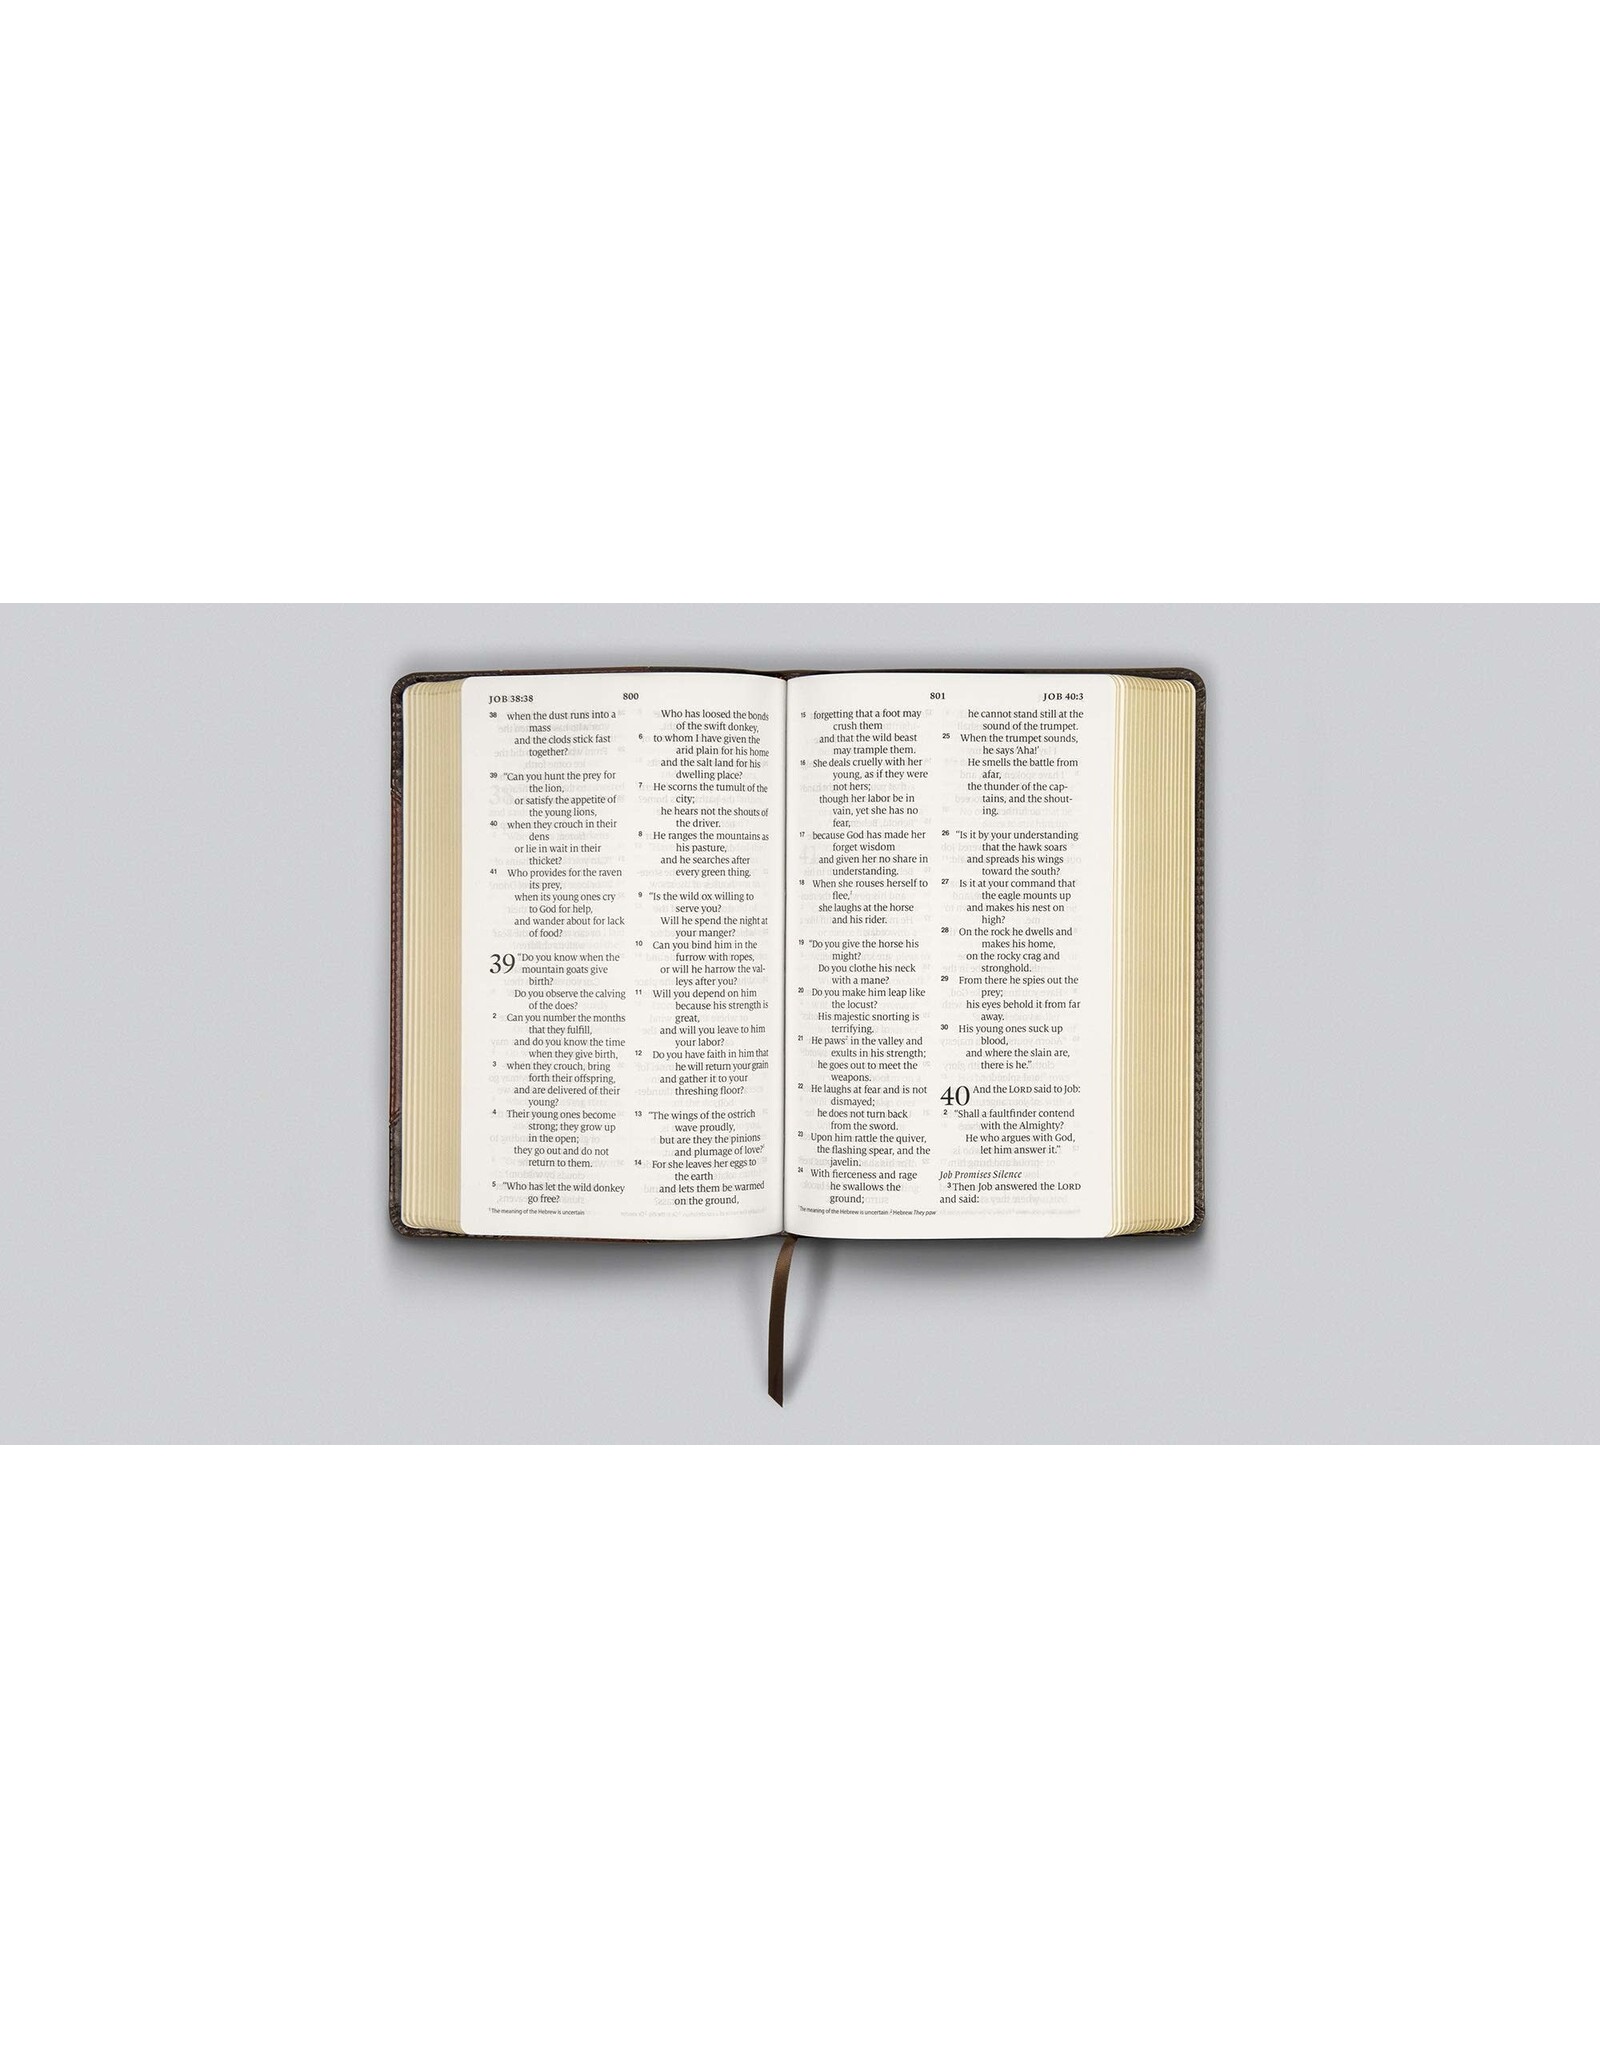 JOB 38:38
800
38 when the dust runs into a
mass
and the clods stick fast
together?
39 “Can you hunt the prey for
the lion,
or satisfy the appetite of
the young lions,
40 when they crouch in their
dens
or lie in wait in their
thicket?
41 Who provides for the raven
its prey,
when its young ones cry
to God for help,
and wander about for lack
of food?
39 “Do you know when the
mountain goats give
birth?
Do you observe the calving
of the does?
2 Can you number the months
that they fulfill,
and do you know the time
when they give birth,
3 when they crouch, bring
forth their offspring,
and are delivered of their
young?
4 Their young ones become
strong; they grow up
in the open;
they go out and do not
return to them.
5 “Who has let the wild donkey
go free?
1 The meaning of the Hebrew is uncertain
Who has loosed the bonds
of the swift donkey,
6 to whom I have given the
arid plain for his home
and the salt land for his
dwelling place?
7 He scorns the tumult of the
city;
he hears not the shouts of
the driver.
8 He ranges the mountains as
his pasture,
and he searches after
every green thing.
9 “Is the wild ox willing to
serve you?
Will he spend the night at
your manger?
10 Can you bind him in the
furrow with ropes,
or will he harrow the val-
leys after you?
11 Will you depend on him
because his strength is
great,
and will you leave to him
your labor?
12 Do you have faith in him that
he will return your grain
and gather it to your
threshing floor?
13 “The wings of the ostrich
wave proudly,
but are they the pinions
and plumage of love?1
14 For she leaves her eggs to
the earth
and lets them be warmed
on the ground,
801
JOB 40:3
15 forgetting that a foot may
crush them
and that the wild beast
may trample them.
16 She deals cruelly with her
young, as if they were
not hers;
though her labor be in
vain, yet she has no
fear,
17 because God has made her
forget wisdom
and given her no share in
understanding.
18 When she rouses herself to
flee,1
she laughs at the horse
and his rider.
19 “Do you give the horse his
might?
Do you clothe his neck
with a mane?
20 Do you make him leap like
the locust?
His majestic snorting is
terrifying.
21 He paws2 in the valley and
exults in his strength;
he goes out to meet the
weapons.
22 He laughs at fear and is not
dismayed;
he does not turn back
from the sword.
23 Upon him rattle the quiver,
the flashing spear, and the
javelin.
24 With fierceness and rage
he swallows the
ground;
1 The meaning of the Hebrew is uncertain 2 Hebrew They paw
he cannot stand still at the
sound of the trumpet.
25 When the trumpet sounds,
he says ‘Aha!’
He smells the battle from
afar,
the thunder of the cap-
tains, and the shout-
ing.
26 “Is it by your understanding
that the hawk soars
and spreads his wings
toward the south?
27 Is it at your command that
the eagle mounts up
and makes his nest on
high?
28 On the rock he dwells and
makes his home,
on the rocky crag and
stronghold.
29 From there he spies out the
prey;
his eyes behold it from far
away.
30 His young ones suck up
blood,
and where the slain are,
there is he.”
40 And the LORD said to Job:
2 “Shall a faultfinder contend
with the Almighty?
He who argues with God,
let him answer it.”
Job Promises Silence
3 Then Job answered the LORD
and said: